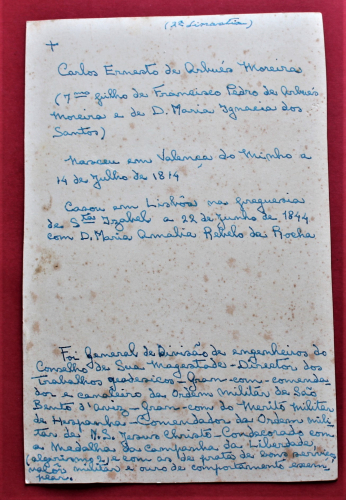 (1ª Dinastia)
+
Carlos Ernesto de Arbués Moreira
(7mo filho de Francisco Pedro de Arbués
Moreira e de D. Maria Ignacia dos
Santos)
Nasceu em Valença do Minho a
14 de Julho de 1814
Casou em Lisbôa na freguesia
de Sta Izabel a 22 de Junho de 1844
com D. Maria Amalia Rebelo da Rocha
Foi General de divisão de engenheiros do
Conselho de Sua Magestade - Director dos
trabalhos geodesicos - Gram-com-comenda
dor e cavaleiro da Ordem militar de São
Bento d'Aviz - Gram-com do Merito militar
de Hespanha - Comendador da Ordem mili
tar de N. S. Jesus Christo - Condecorado com
a Medalha da Campanha da Liberdade
(algarismo 2) e com as de prata de bons serviços
militar e ouro de comportamento exem
plar.